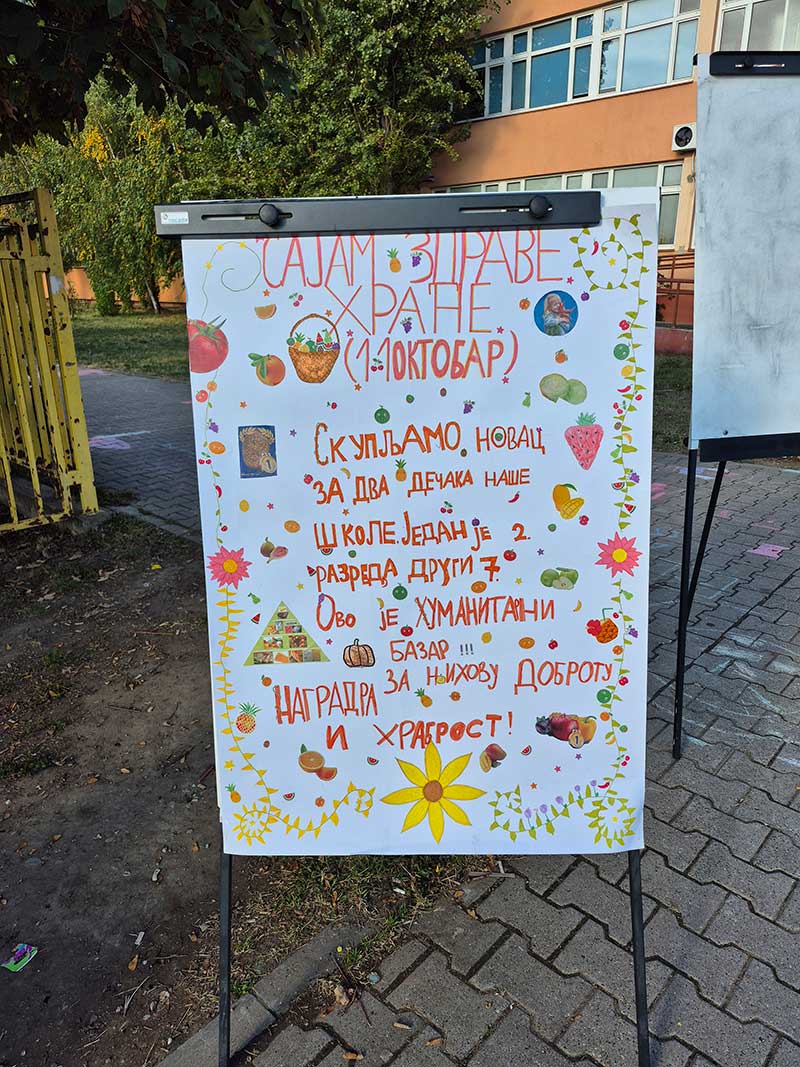 САЈАМ ЗДРАВЕ
ХРАНЕ
(11 ОКТОБАР)
СКУПЉАМО НОВАЦ
ЗА ДВА ДЕЧАКА НАШЕ
ШКОЛЕ. ЈЕДАН ЈЕ 2.
РАЗРЕДА ДРУГИ 7.
ОВО ЈЕ ХУМАНИТАРНИ
БАЗАР !!!
НАГРАДРА ЗА ЊИХОВУ ДОБРОТУ
И ХРАБРОСТ!